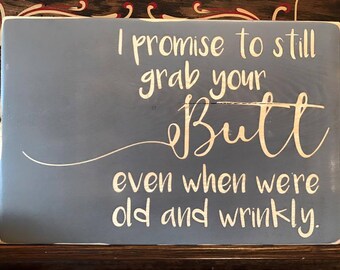 I promise to still
grab your
Butt
even when were
old and wrinkly.